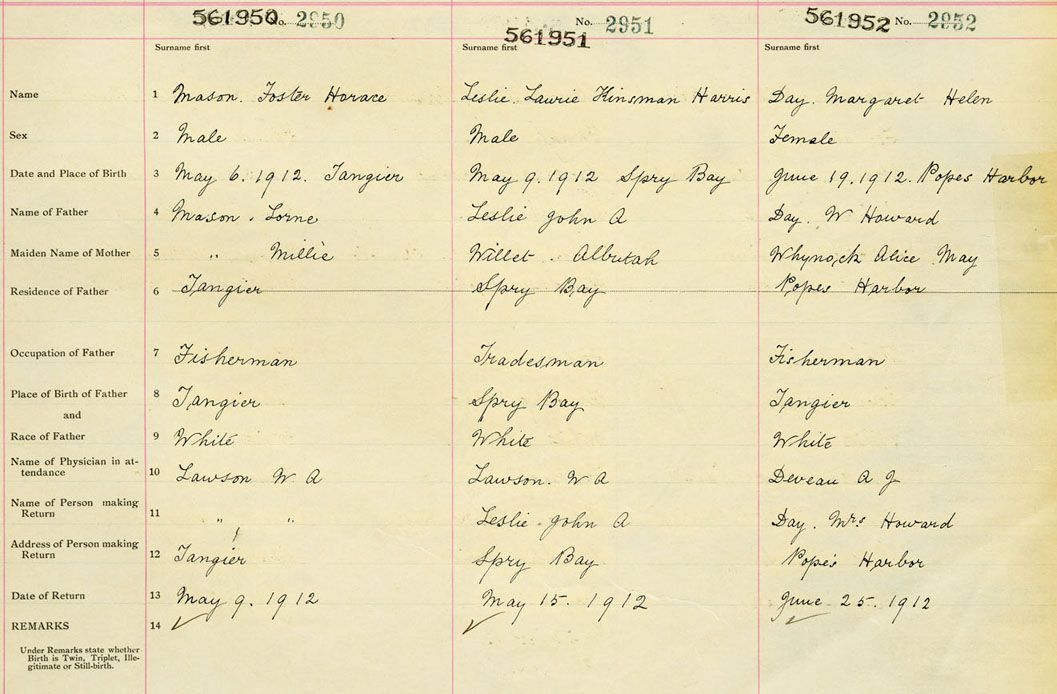 561950 No. 2950 561951 No. 2951 561952 No. 2952
Surname first Surname first Surname first
Name 1 Mason. Foster Horace Leslie. Laurie Kinsman Harris Day. Margaret Helen
Sex 2 Male Male Female
Date and Place of Birth 3 May 6. 1912. Tangier May 9. 1912 Spry Bay June 19. 1912. Popes Harbor
Name of Father 4 Mason. Lorne Leslie John A Day. W Howard
Maiden Name of Mother 5 " Millie Willet. Albutah Whynock Alice May
Residence of Father 6 Tangier Spry Bay Popes Harbor
Occupation of Father 7 Fisherman Tradesman Fisherman
Place of Birth of Father 8 Tangier Spry Bay Tangier
and
Race of Father 9 White White White
Name of Physician in at-
tendance 10 Lawson W A Lawson. W A Deveau A J
Name of Person making
Return 11 " " Leslie John A Day. Mrs Howard
Address of Person making
Return 12 Tangier Spry Bay Pope's Harbor
Date of Return 13 May 9. 1912 May 15. 1912 June 25. 1912
REMARKS 14 ✓ ✓ ✓
Under Remarks state whether
Birth is Twin, Triplet, Ille-
gitimate or Still-birth.